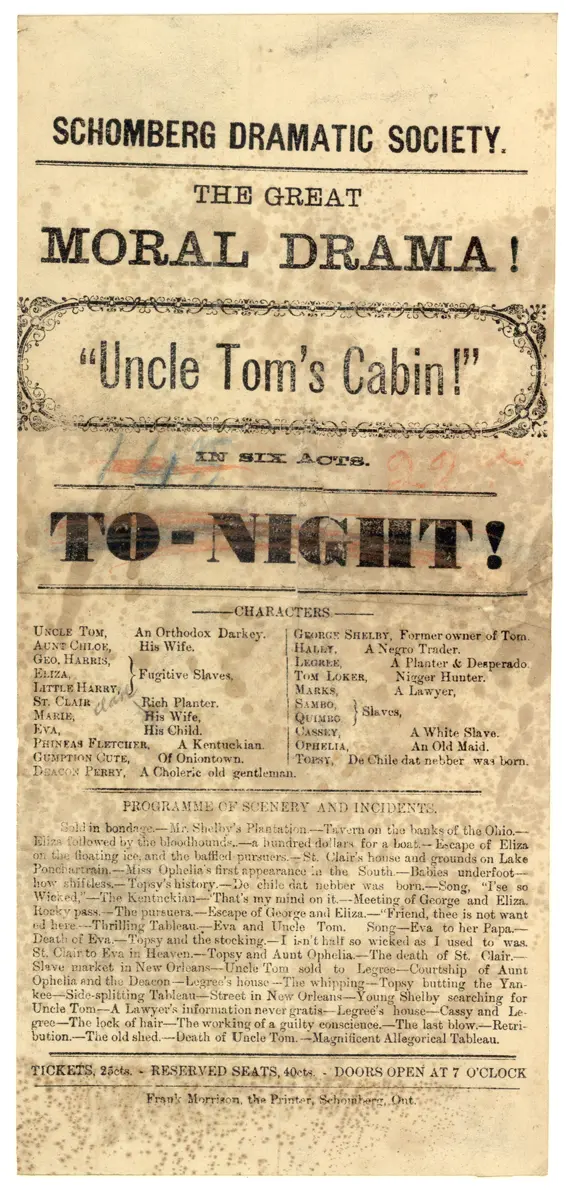 SCHOMBERG DRAMATIC SOCIETY.
THE GREAT
MORAL DRAMA!
"Uncle Tom's Cabin!"
IN SIX ACTS.
TO-NIGHT!
CHARACTERS
UNCLE TOM, An Orthodox Darkey.
AUNT CHLOE, His Wife.
GEO. HARRIS,
ELIZA, Fugitive Slaves.
LITTLE HARRY,
ST. CLAIR Rich Planter.
MARIE, His Wife,
EVA, His Child.
PHINEAS FLETCHER, A Kentuckian.
GUMPTION CUTE, Of Oniontown.
DEACON PERRY, A Choleric old gentleman.
GEORGE SHELBY, Former owner of Tom.
HALEY, A Negro Trader.
LEGREE, A Planter & Desperado.
TOM LOKER, Nigger Hunter.
MARKS, A Lawyer,
SAMBO,
QUIMBO Slaves,
CASSEY, A White Slave.
OPHELIA, An Old Maid.
TOPSY, De Chile dat nebber was born.
PROGRAMME OF SCENERY AND INCIDENTS.
Sold in bondage.—Mr. Shelby's Plantation.—Tavern on the banks of the Ohio.—
Eliza followed by the bloodhounds.—a hundred dollars for a boat.—Escape of Eliza
on the floating ice, and the baffled pursuers.—St. Clair's house and grounds on Lake
Ponchartrain.—Miss Ophelia's first appearance in the South.—Babies underfoot—
how shiftless.—Topsy's history.—De chile dat nebber was born.—Song, "I'se so
Wicked,"—The Kentuckian—"That's my mind on it.—Meeting of George and Eliza.
Rocky pass.—The pursuers.—Escape of George and Eliza.—"Friend, thee is not want
ed here.—Thrilling Tableau.—Eva and Uncle Tom. Song—Eva to her Papa.—
Death of Eva.—Topsy and the stocking.—I isn't half so wicked as I used to was.
St. Clair to Eva in Heaven.—Topsy and Aunt Ophelia.—The death of St. Clair.—
Slave market in New Orleans—Uncle Tom sold to Legree—Courtship of Aunt
Ophelia and the Deacon—Legree's house—The whipping—Topsy butting the Yan-
kee—Side-splitting Tableau—Street in New Orleans—Young Shelby searching for
Uncle Tom—A Lawyer's information never gratis—Legree's house—Cassy and Le-
gree—The lock of hair—The working of a guilty conscience.—The last blow.—Retri-
bution.—The old shed.—Death of Uncle Tom.—Magnificent Allegorical Tableau.
TICKETS, 25cts. - RESERVED SEATS, 40cts. - DOORS OPEN AT 7 O'CLOCK
Frank Morrison, the Printer, Schomberg, Ont.